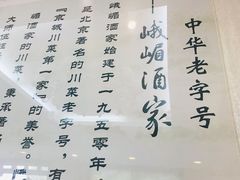 中华老字号
峨嵋酒家
峨嵋酒家始建于一九五零年
是北京著名的川菜老字号，有
“京城川菜第一家”的美誉。
嵋酒家的川菜
大师伍